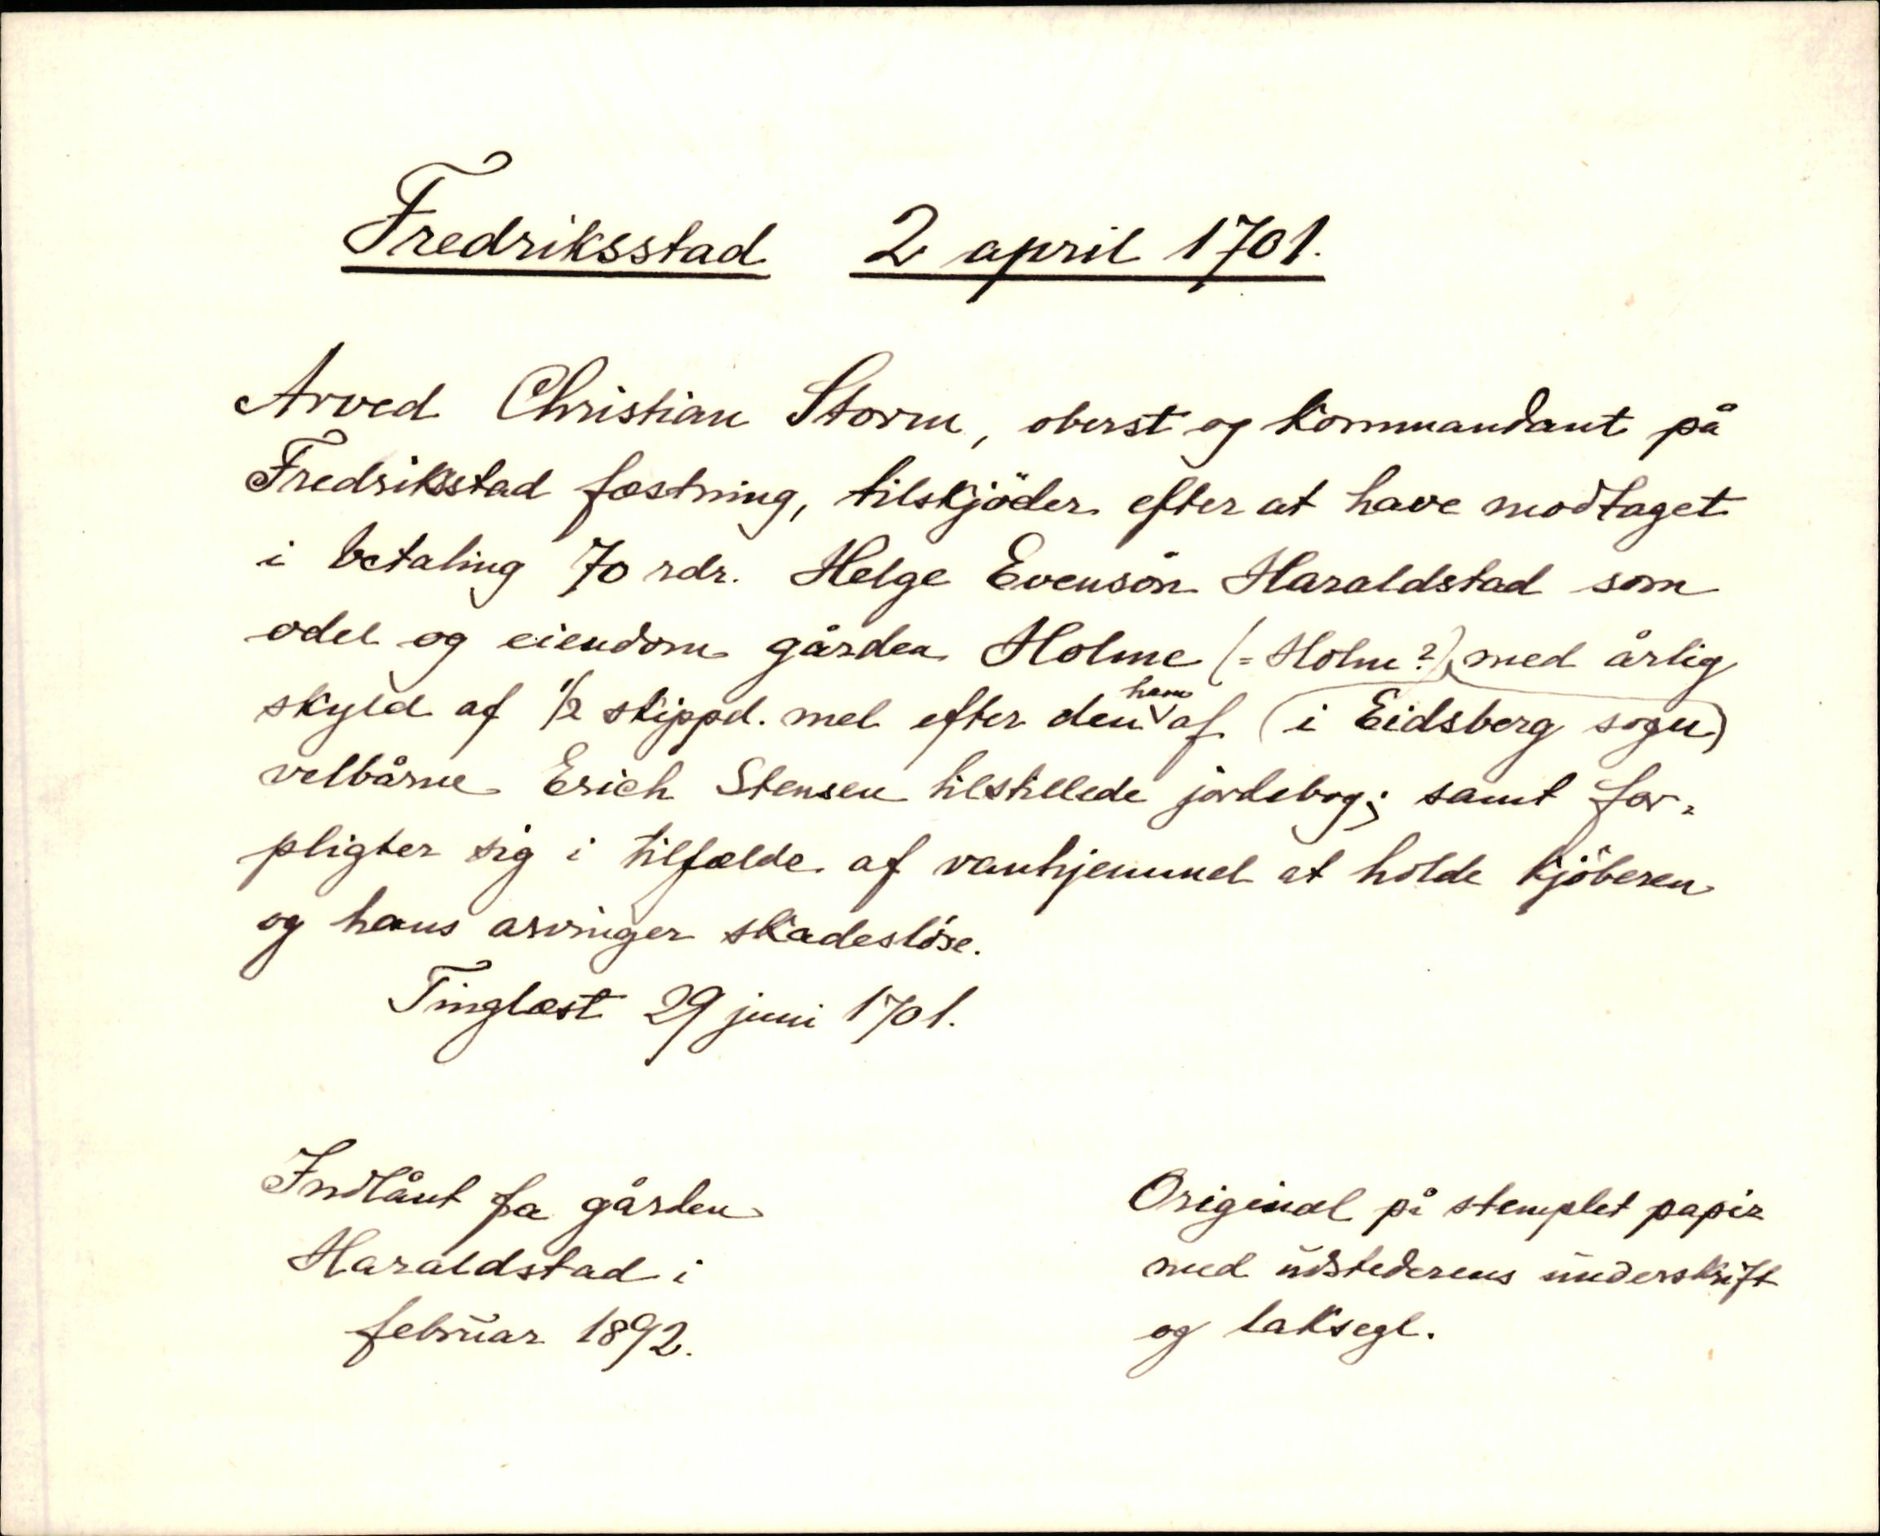 Fredriksstad 2 april 1701.
Arved Christian Storm, oberst og kommandant på
Fredriksstad fæstning, tilskjöder efter at have modtaget
i betaling 70 rdr. Helge Evensön Haraldstad som
odel og eiendom gården Holme (= Holm?) med årlig
(i Eidsberg sogn)
skyld af 1/2 skippd. mel efter den ham af
velbårne Erich Stensen tilstillede jordebog; samt for-
pligter sig i tilfælde af vanhjemmel at holde kjöberen
og hans arvinger skadeslöse.
Tinglæst 29 juni 1701.
Indlånt fa gården
Haraldstad i
februar 1892.
Original på stemplet papir
med udstederens underskrift
og laksegl.